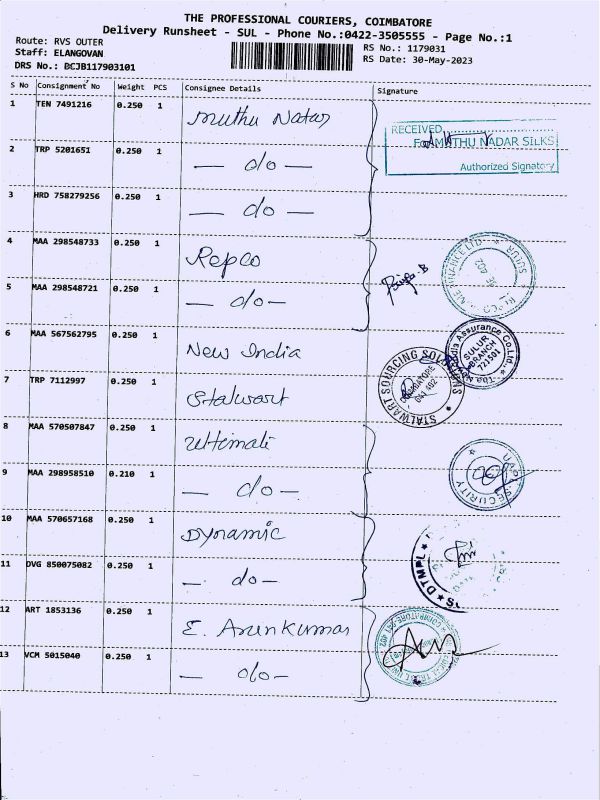 THE PROFESSIONAL COURIERS, COIMBATORE
Delivery Runsheet - SUL - Phone No.:0422-3505555 - Page No.:1
Route: RVS OUTER
RS No.: 1179031
Staff: ELANGOVAN
RS Date: 30-May-2023
DRS No.: BCJB117903101
S No Consignment No Weight PCS Consignee Details Signature
1 TEN 7491216 0.250 1 Muthu Nadar
RECEIVED
For MUTHU NADAR SILKS
Authorized Signatory
2 TRP 5201651 0.250 1 — do —
3 HRD 758279256 0.250 1 — do —
4 MAA 298548733 0.250 1 Repco
SULUR
5 MAA 298548721 0.250 1 — do —
6 MAA 567562795 0.250 1 New India
India Assurance Co. Ltd.,
SULUR
BRANCH
721501
7 TRP 7112997 0.250 1 Stalwart
STALWART SOURCING SOLUTIONS
COIMBATORE
641 402
8 MAA 570507847 0.250 1 Ultimate
SECURITY
9 MAA 298958510 0.210 1 — do —
10 MAA 570657168 0.250 1 Dynamic
DTMPL
11 DVG 850075082 0.250 1 — do —
12 ART 1853136 0.250 1 E. Arunkumar
13 VCM 5015040 0.250 1 — do —